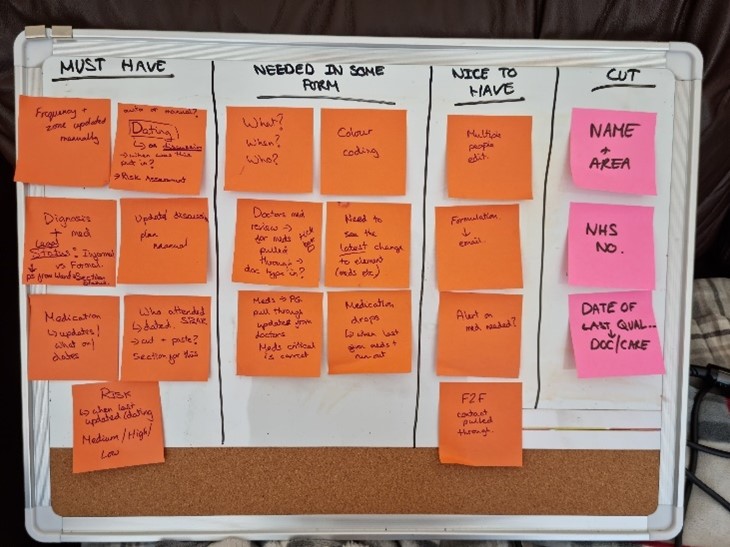 MUST HAVE
Frequency +
zone updated
manually
auto or manual?
Dating
↳ on discussion
→ when was this
put in?
→ Risk Assessment
Diagnosis
+ med
Legal
Status: Informal
vs Formal.
↓
from Ward + Section
Status.
Update/discussion
plan
manual
Medication
↳ updates/
what on/
dates
Who attended
↳ dated.
→ cut + paste?
Section for this
Risk
↳ when last
updated/dating
Medium/High/
Low
NEEDED IN SOME
FORM
What?
When?
Who?
Colour
coding
Doctors med
review →
for meds
pulled
through →
doc type in?
tick
box
Need to
see the
latest change
to element
(meds etc)
Meds → PG.
pull through
updated from
doctors
Meds critical
is correct
Medication
drops
↳ when last
meds +
run out
NICE TO
HAVE
Multiple
people
edit.
Formulation
↓
email.
Alert on
med needed?
F2F
contact
pulled
through.
CUT
NAME
+
AREA
NHS
NO.
DATE OF
LAST QUAL...
↓
DOC/CARE